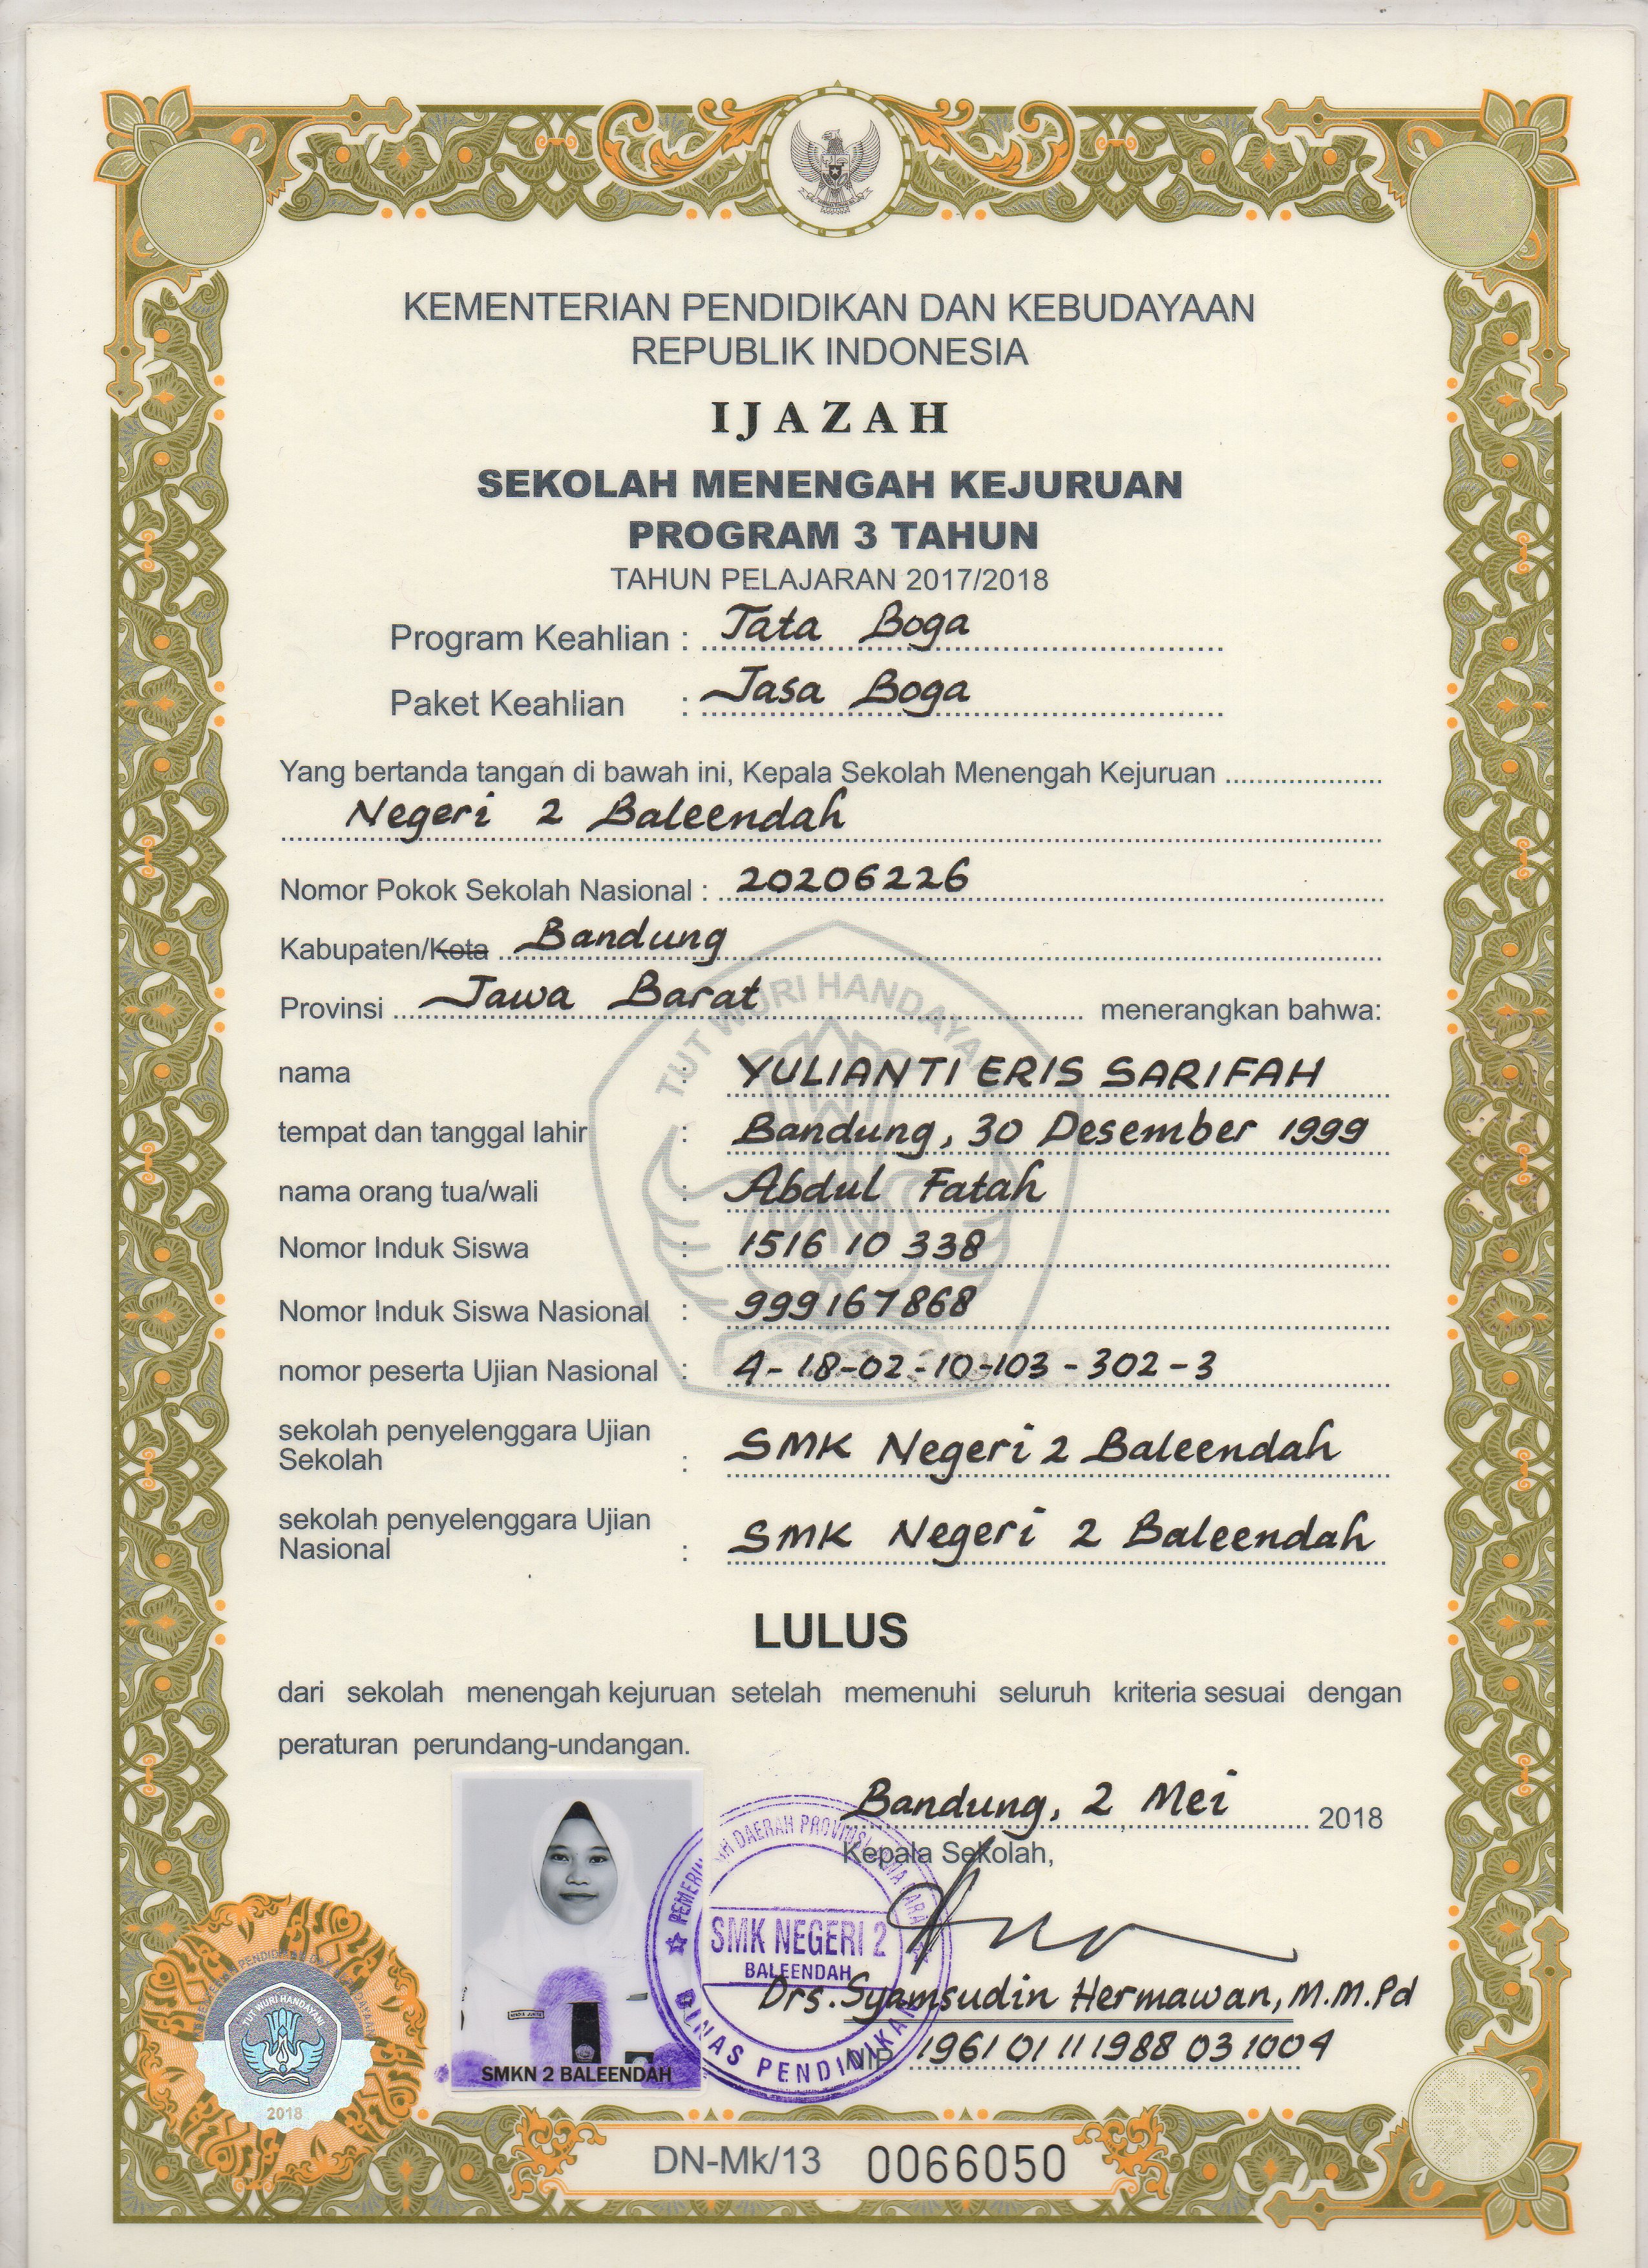 KEMENTERIAN PENDIDIKAN DAN KEBUDAYAAN
REPUBLIK INDONESIA
IJAZAH
SEKOLAH MENENGAH KEJURUAN
PROGRAM 3 TAHUN
TAHUN PELAJARAN 2017/2018
Program Keahlian : Tata Boga
Paket Keahlian : Jasa Boga
Yang bertanda tangan di bawah ini, Kepala Sekolah Menengah Kejuruan
Negeri 2 Baleendah
Nomor Pokok Sekolah Nasional : 20206226
Kabupaten/Kota Bandung
Provinsi Jawa Barat menerangkan bahwa:
TUT WURI HANDAYANI
nama : YULIANTI ERIS SARIFAH
tempat dan tanggal lahir : Bandung, 30 Desember 1999
nama orang tua/wali : Abdul Fatah
Nomor Induk Siswa : 1516 10 338
Nomor Induk Siswa Nasional : 999167868
nomor peserta Ujian Nasional : 4-18-02-10-103-302-3
sekolah penyelenggara Ujian
Sekolah : SMK Negeri 2 Baleendah
sekolah penyelenggara Ujian
Nasional : SMK Negeri 2 Baleendah
LULUS
dari sekolah menengah kejuruan setelah memenuhi seluruh kriteria sesuai dengan
peraturan perundang-undangan.
Bandung, 2 Mei 2018
Kepala Sekolah,
DAERAH PROVINSI
SMK NEGERI 2
BALEENDAH
DINAS PENDIDIKAN
Drs. Syamsudin Hermawan, M.M.Pd
NIP. 19610111 1988 03 1004
SMKN 2 BALEENDAH
TUT WURI HANDAYANI
2018
DN-Mk/13 0066050